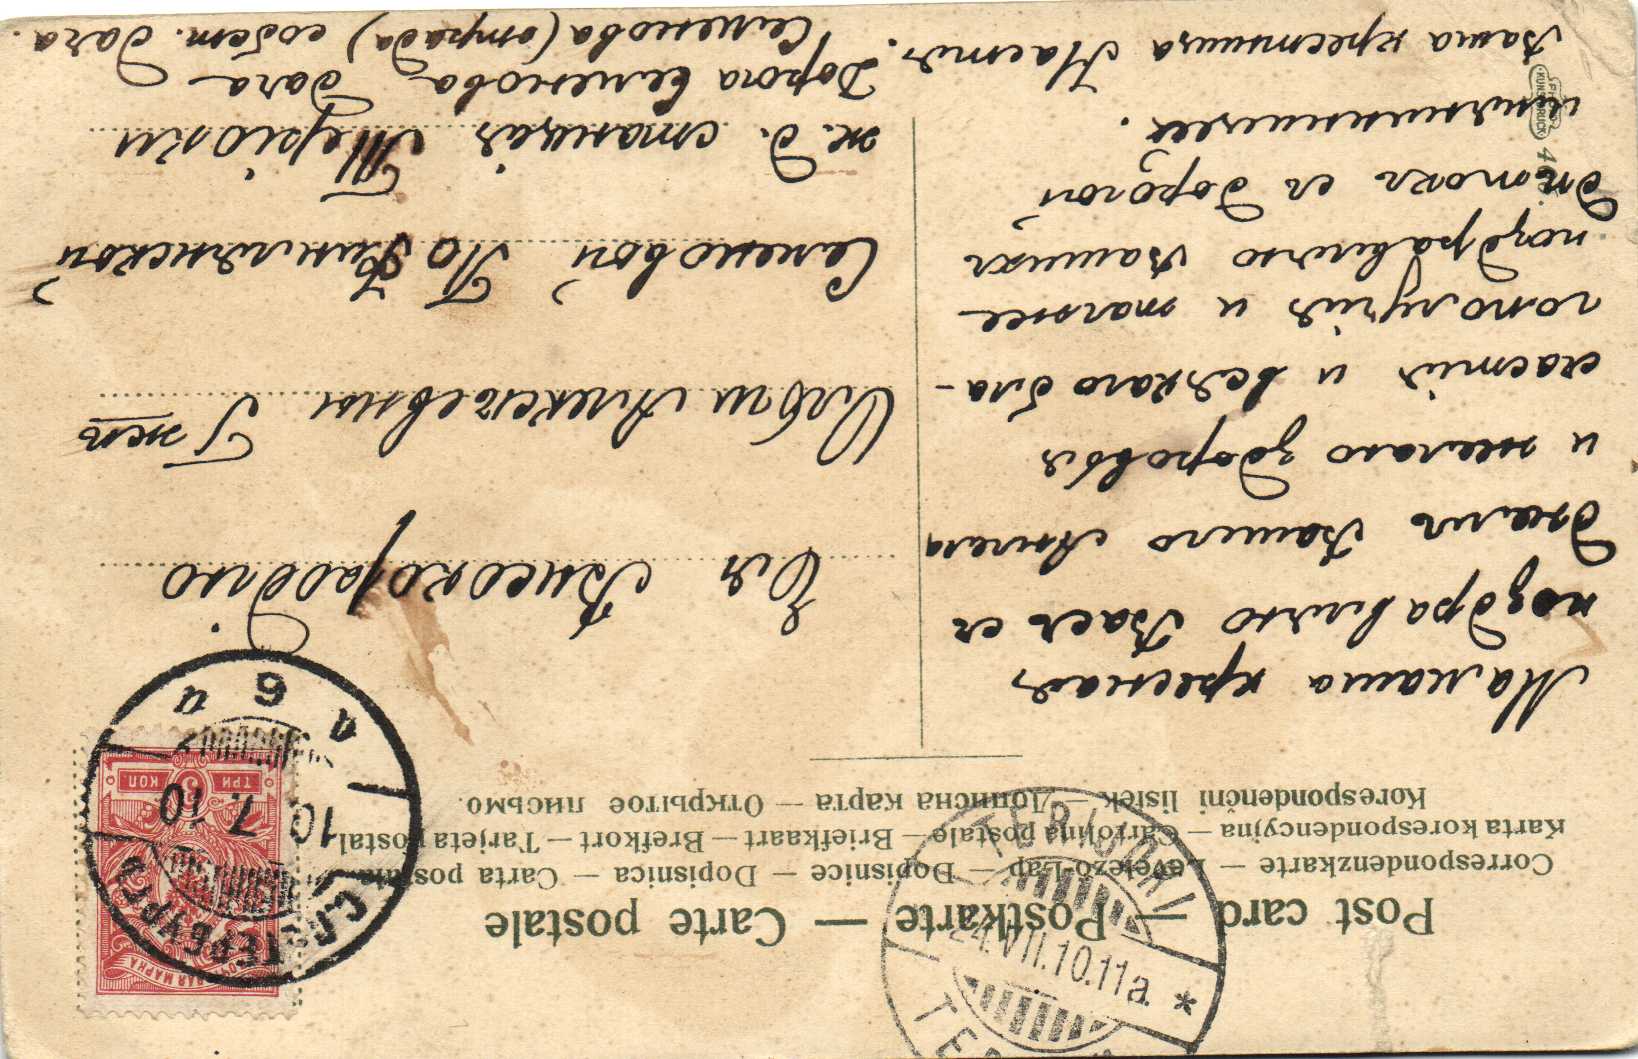 Post card — Postkarte — Carte postale
Correspondenzkarte — Levelező-Lap — Dopisnice — Dopisnica — Carta postala
Karta korespondencyjna — Cartolina postale — Briefkaart — Brefkort — Tarjeta postal
Korespondenční lístek — Дописна карта — Открытое письмо.
Мамаша кресная
поздравляю Васъ съ
днемъ Вашего Ангела
и желаю здоровья
счастія и всякаго бла-
гополучія и также
поздравляю Вашихъ
дѣтокъ съ дорогой
Ваша крестница Настя.
Ея Высокородію
Ольги Алексѣевны Г-жѣ
Семеновой По Финлянской
ж. д. станція Теріоки
Дорога Семенова Дача
Семенова (отрада) собст. Дача.
ТРИ 3 КОП.
С.ПЕТЕРБУРГЪ
10 7. 10
TERIJOKI
24.VII.10.11a. *